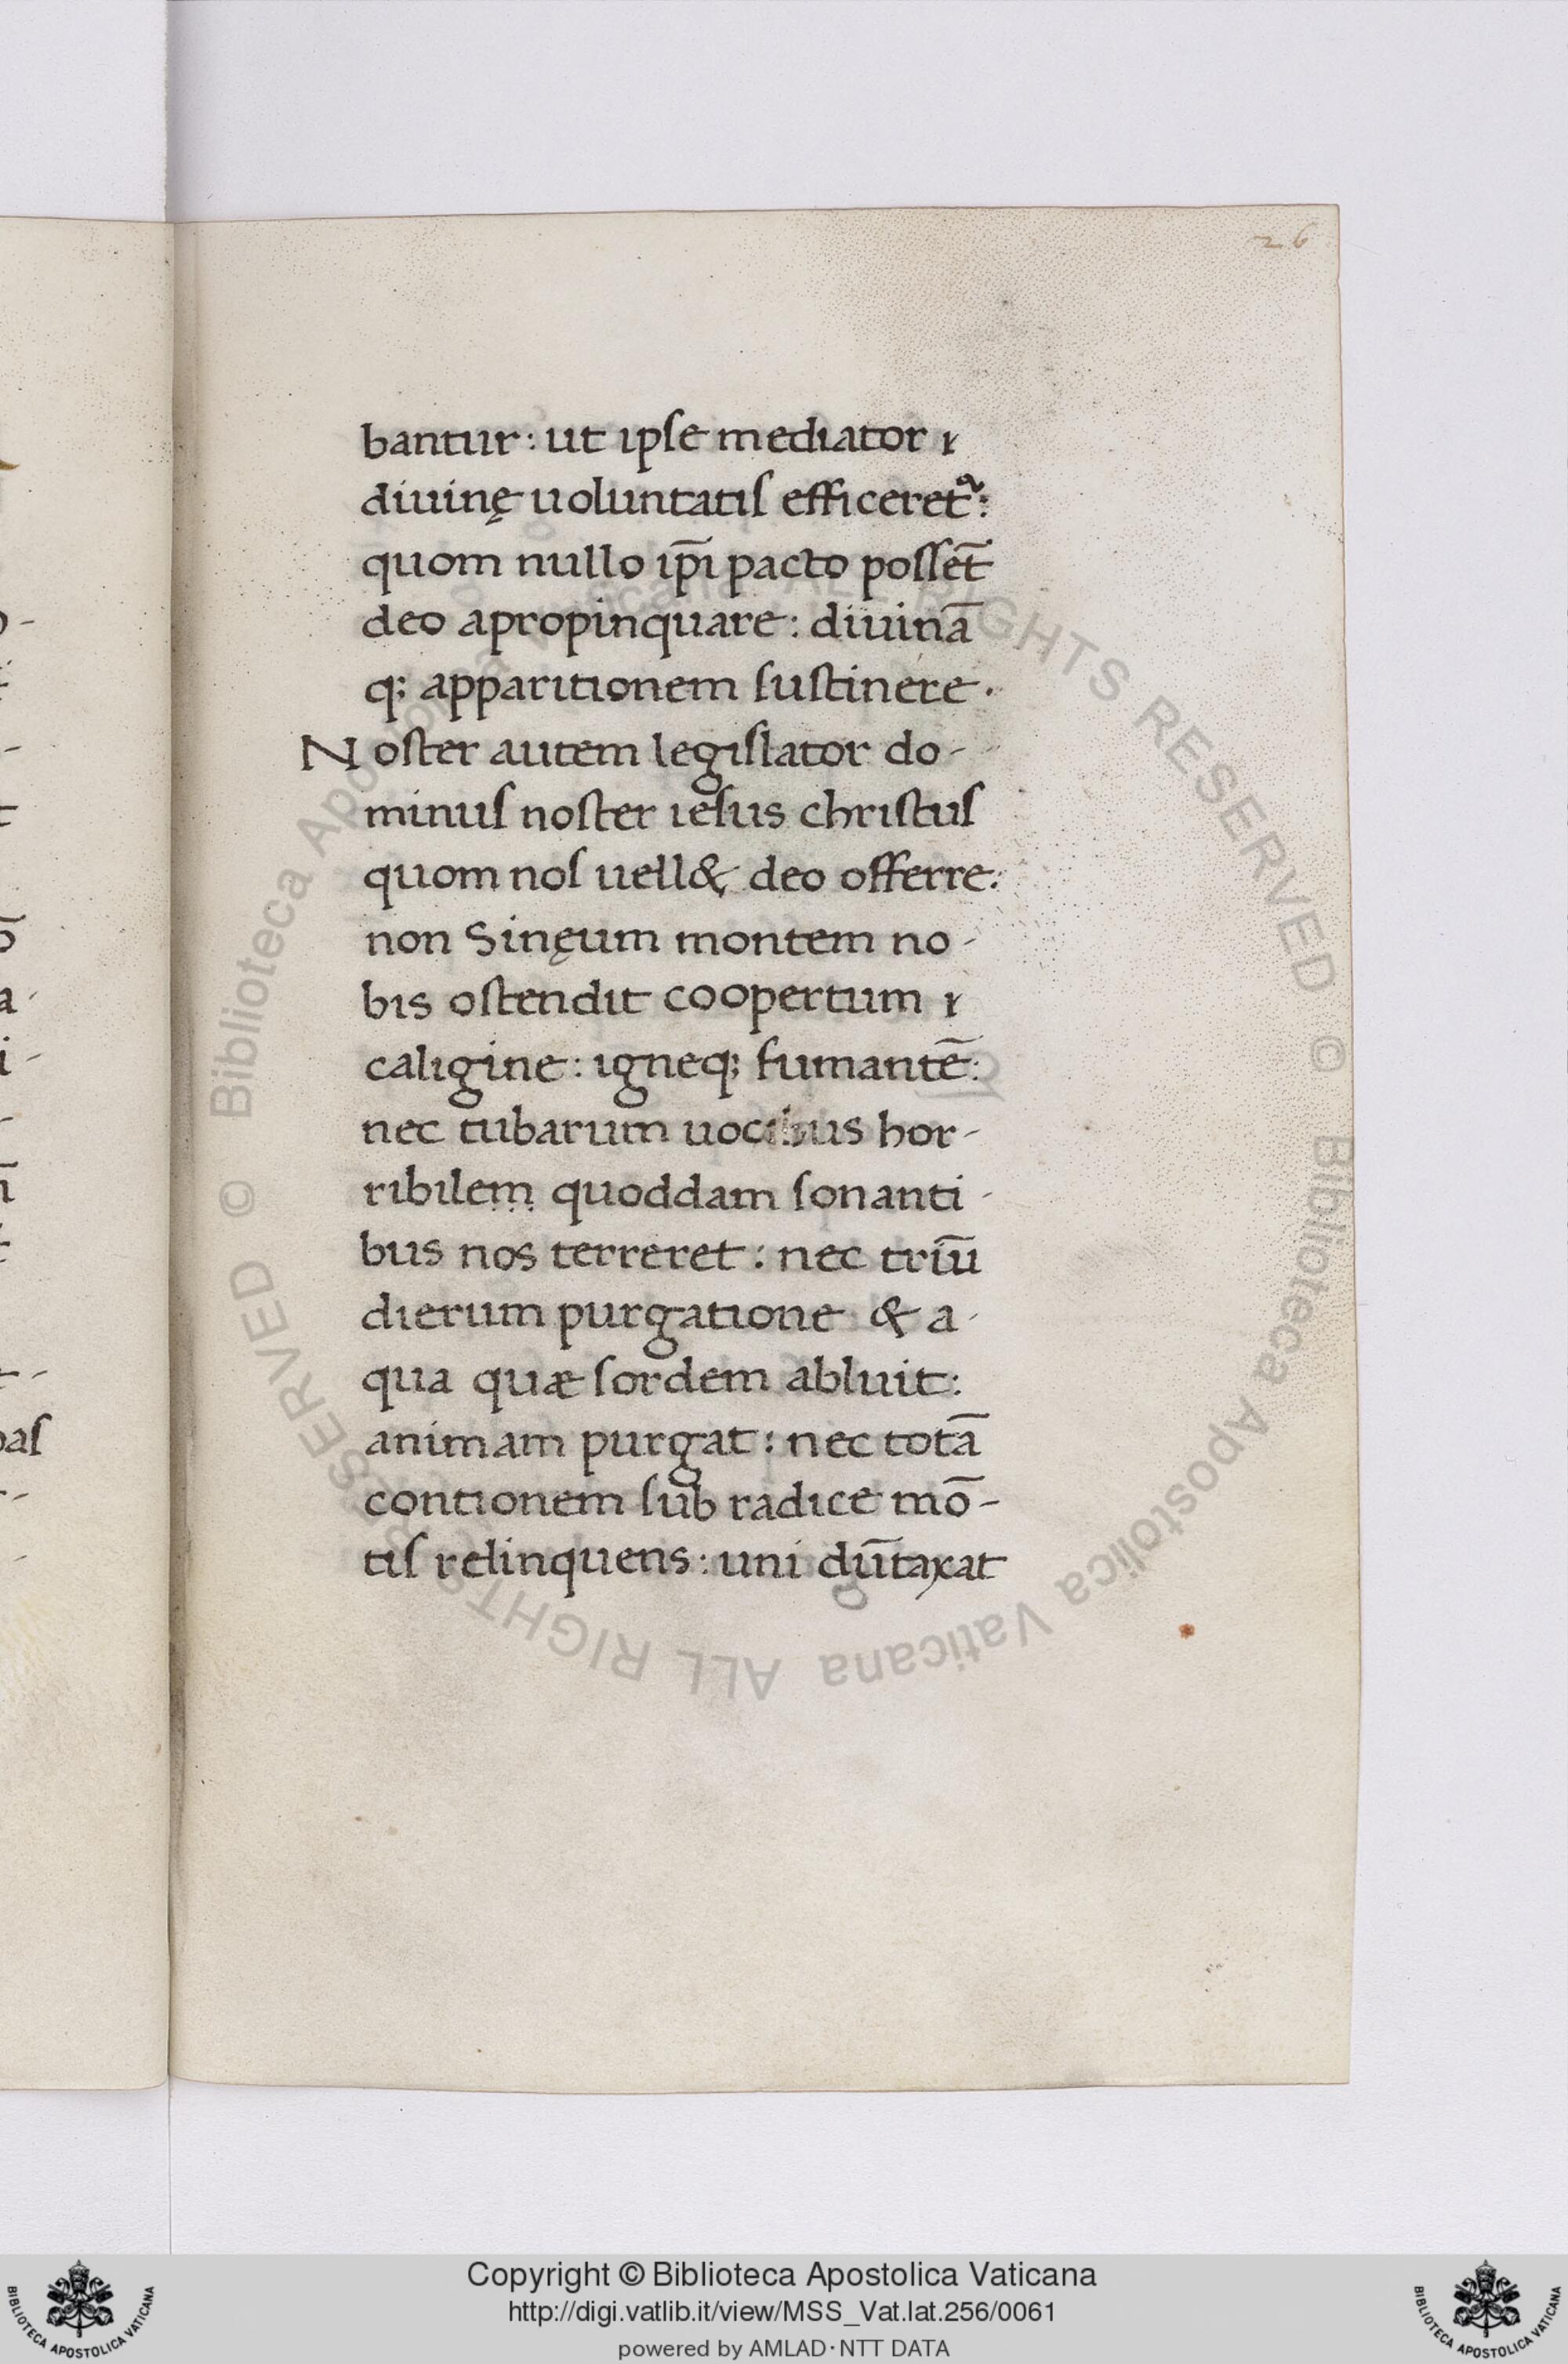 26
bantur: ut ipse mediator &
diuinę uoluntatis efficeret᷑:
quom nullo ip̄i pacto posset̄
deo apropinquare: diuinā
q; apparitionem sustinere.
Noster autem legislator do-
minus noster iesus christus
quom nos uell& deo offerre:
non Sinęum montem no-
bis ostendit coopertum &
caligine: igneq; fumantē:
nec tubarum uocibus hor-
ribilem quoddam sonanti-
bus nos terreret: nec triū
dierum purgatione & a-
qua quæ sordem abluit:
animam purgat: nec totā
contionem sub radice mō-
tis relinquens: uni dūtaxat
Copyright © Biblioteca Apostolica Vaticana
http://digi.vatlib.it/view/MSS_Vat.lat.256/0061
powered by AMLAD·NTT DATA
BIBLIOTECA APOSTOLICA VATICANA
BIBLIOTECA APOSTOLICA VATICANA
© Biblioteca Apostolica Vaticana ALL RIGHTS RESERVED © Biblioteca Apostolica Vaticana ALL RIGHTS RESERVED